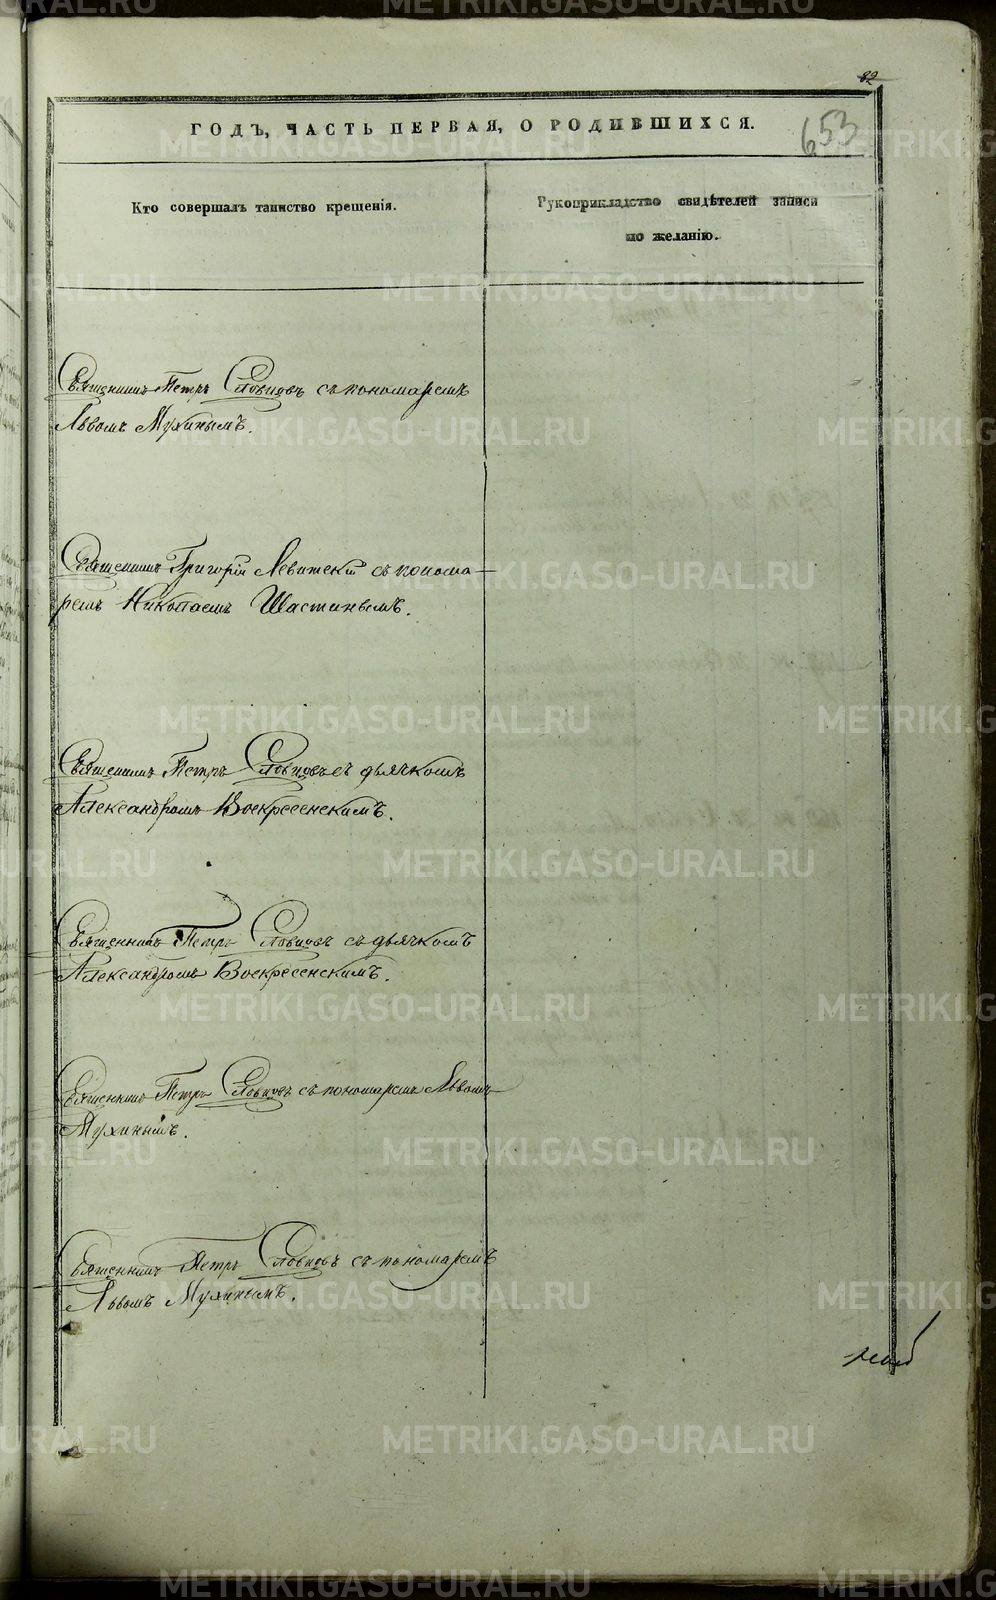 82
653
ГОДЪ, ЧАСТЬ ПЕРВАЯ, О РОДИВШИХСЯ.
Кто совершалъ таинство крещенія.
Рукоприкладство свидѣтелей записи
по желанію.
Священникъ Петръ Словцовъ съ пономаремъ
Львомъ Мухинымъ.
Священникъ Григорій Левитскій съ понома-
ремъ Николаемъ Шастинымъ.
Священникъ Петръ Словцовъ съ дьячкомъ
Александромъ Воскресенскимъ.
Священникъ Петръ Словцовъ съ дьячкомъ
Александромъ Воскресенскимъ.
Священникъ Петръ Словцовъ съ пономаремъ Львомъ
Мухинымъ.
Священникъ Петръ Словцовъ съ пономаремъ
Львомъ Мухинымъ.
METRIKI.GASO-URAL.RU